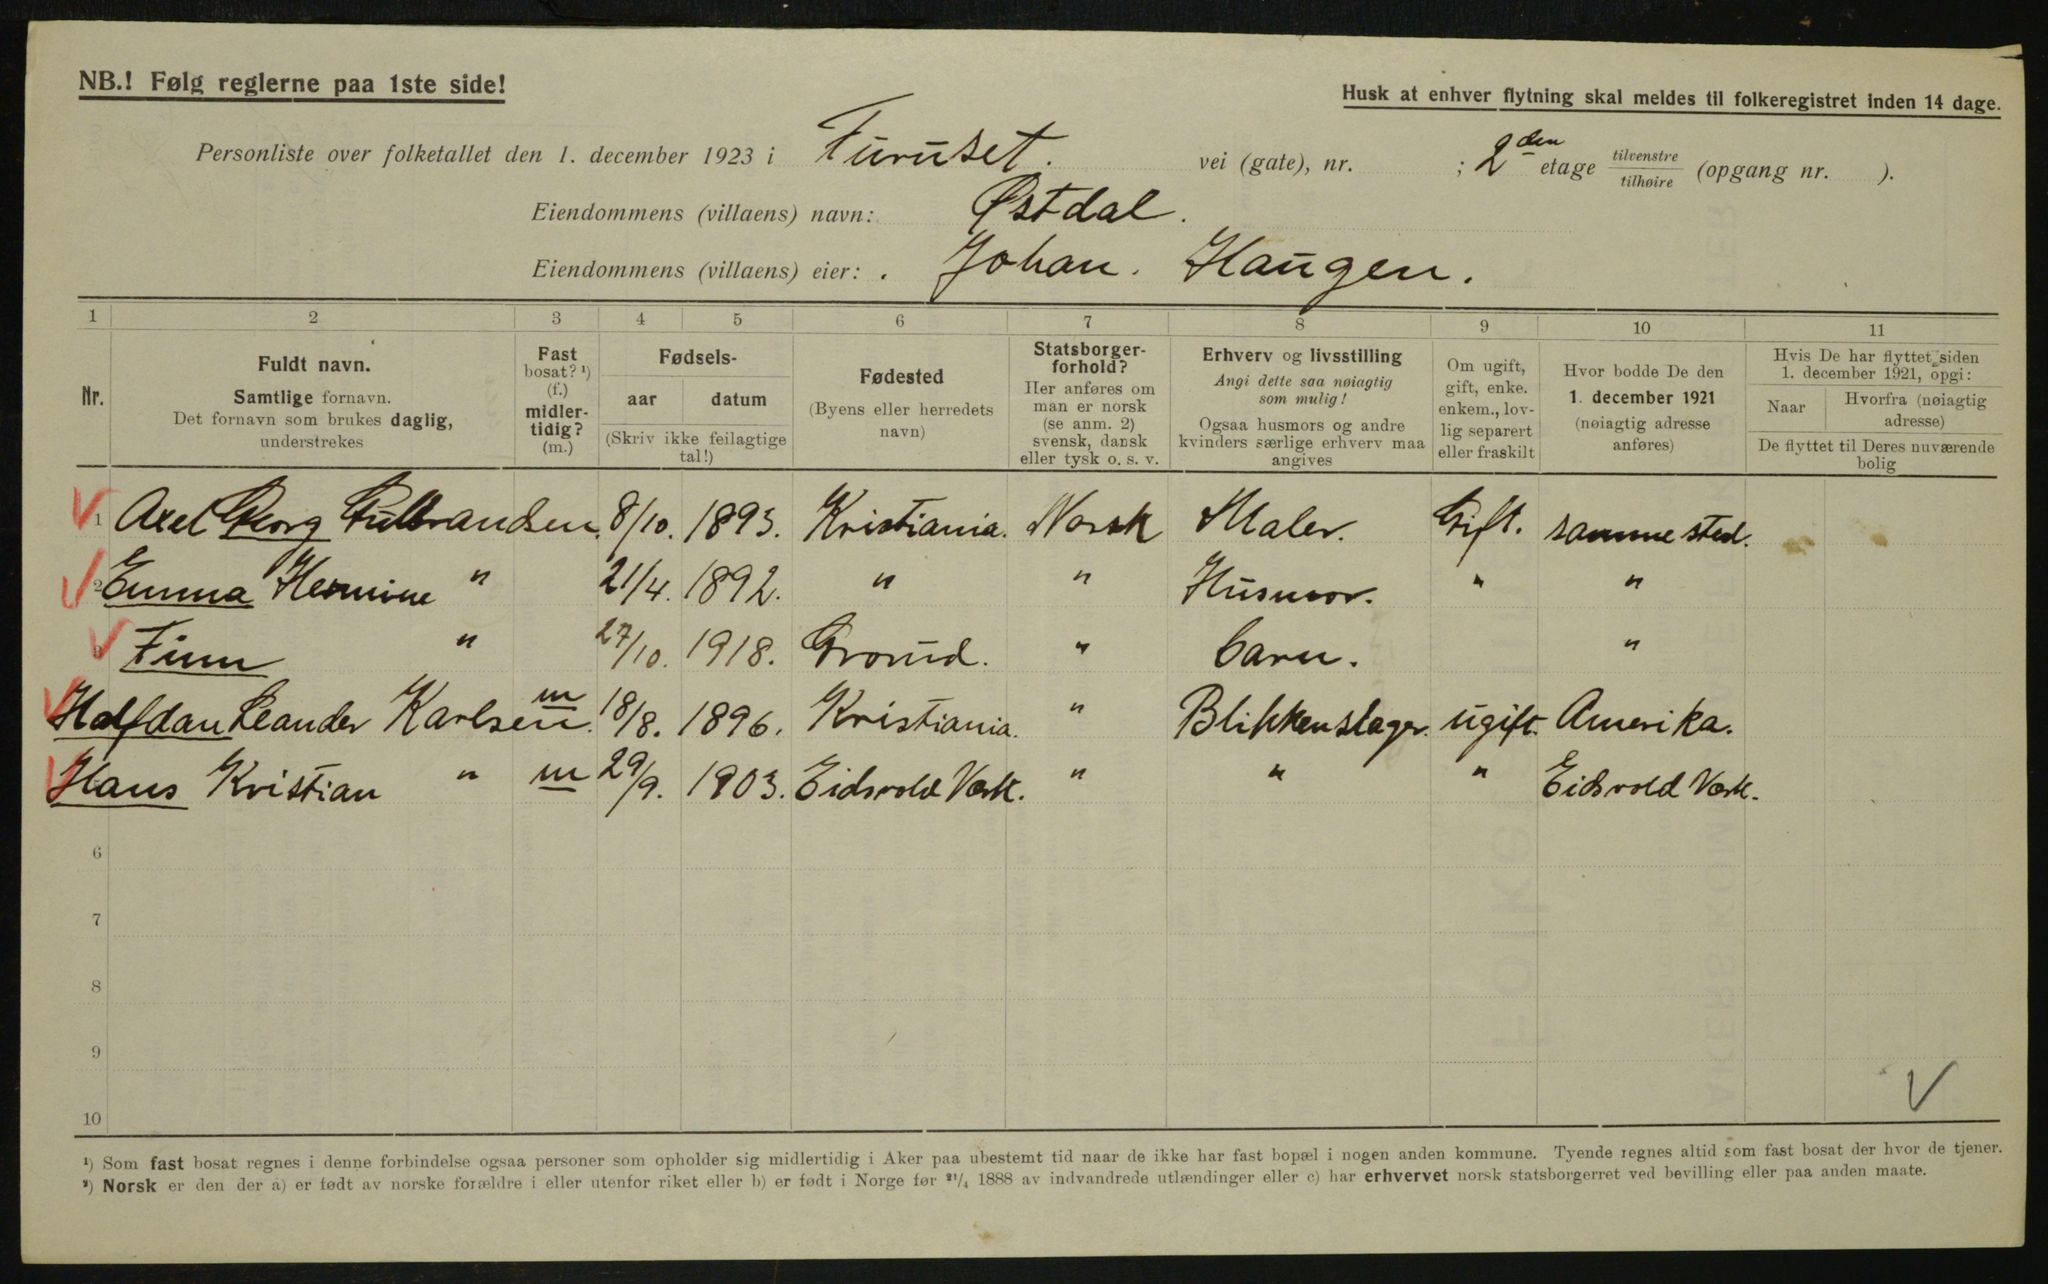 NB.! Følg reglerne paa 1ste side!
Husk at enhver flytning skal meldes til folkeregistret inden 14 dage.
Personliste over folketallet den 1. december 1923 i Furuset. vei (gate), nr. ; 2den etage tilvenstre/tilhøire (opgang nr. ).
Eiendommens (villaens) navn: Østdal.
Eiendommens (villaens) eier: Johan. Haugen.
1 2 3 4 5 6 7 8 9 10 11
Nr.
Fuldt navn.
Samtlige fornavn.
Det fornavn som brukes daglig,
understrekes
Fast
bosat? ¹)
(f.)
midler-
tidig?
(m.)
Fødsels-
aar datum
(Skriv ikke feilagtige
tal!)
Fødested
(Byens eller herredets
navn)
Statsborger-
forhold?
Her anføres om
man er norsk
(se anm. 2)
svensk, dansk
eller tysk o. s. v.
Erhverv og livsstilling
Angi dette saa nøiagtig
som mulig!
Ogsaa husmors og andre
kvinders særlige erhverv maa
angives
Om ugift,
gift, enke.
enkem., lov-
lig separert
eller fraskilt
Hvor bodde De den
1. december 1921
(nøiagtig adresse
anføres)
Hvis De har flyttet siden
1. december 1921, opgi:
Naar
Hvorfra (nøiagtig
adresse)
De flyttet til Deres nuværende
bolig
1 Axel Georg Gulbrandsen. 8/10. 1893. Kristiania. Norsk Maler. Gift. samme sted.
2 Emma Hermine " 21/4. 1892. " " Husmor. " "
3 Finn " 27/10. 1918. Grorud. " barn. "
Halfdan Leander Karlsen. m 18/8. 1896. Kristiania. " Blikkenslager. ugift. Amerika.
Hans Kristian " m 29/9. 1903. Eidsvold Værk. " " " Eidsvold Værk.
6
7
8
9
10
¹) Som fast bosat regnes i denne forbindelse ogsaa personer som opholder sig midlertidig i Aker paa ubestemt tid naar de ikke har fast bopæl i nogen anden kommune. Tyende regnes altid som fast bosat der hvor de tjener.
²) Norsk er den der a) er født av norske forældre i eller utenfor riket eller b) er født i Norge før ²¹/₄ 1888 av indvandrede utlændinger eller c) har erhvervet norsk statsborgerret ved bevilling eller paa anden maate.